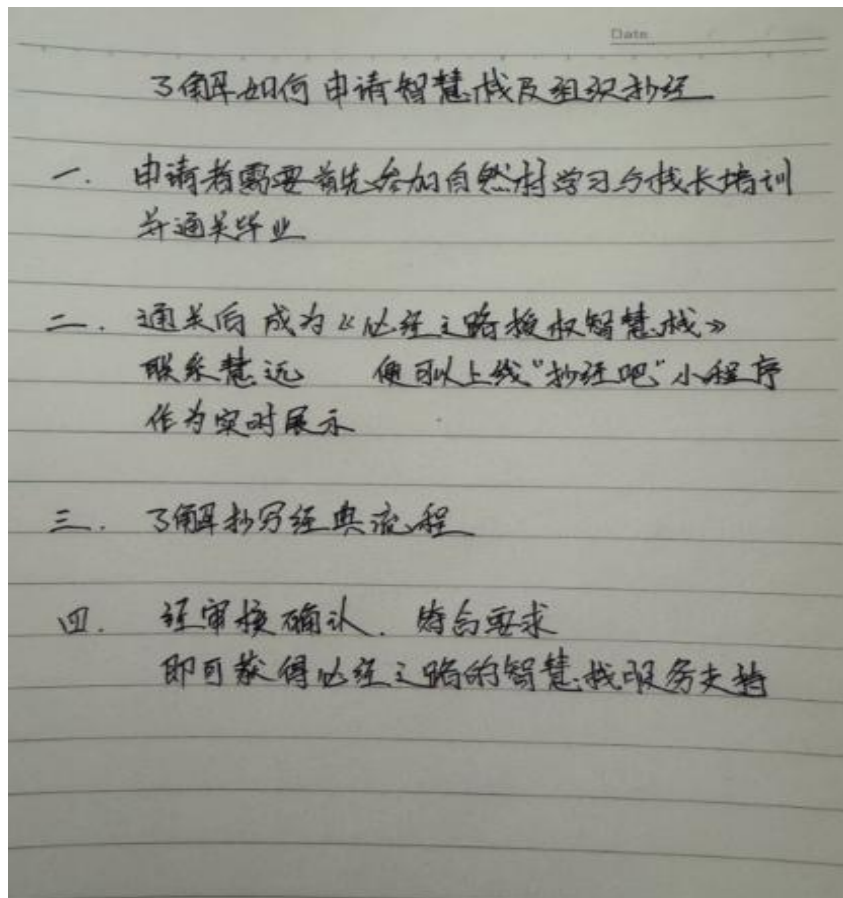 Date
了解如何申请智慧栈及组织抄经
一. 申请者需要首先参加自然村学习与栈长培训
并通关毕业
二. 通关后 成为《必经之路授权智慧栈》
联系慧远 便可以上线“抄经吧”小程序
作为实时展示
三. 了解抄写经典流程
四. 经审核确认. 符合要求
即可获得必经之路的智慧栈服务支持